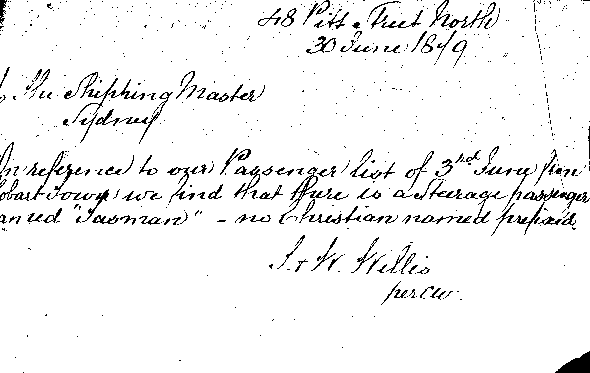 48 Pitt Street North
30 June 1879
The Shipping Master
Sydney
In reference to our Passenger list of 3rd June from
Hobart Town we find that there is a steerage passenger
named "Tasman" - no Christian named prefixed
J & W. Willis
per CW.